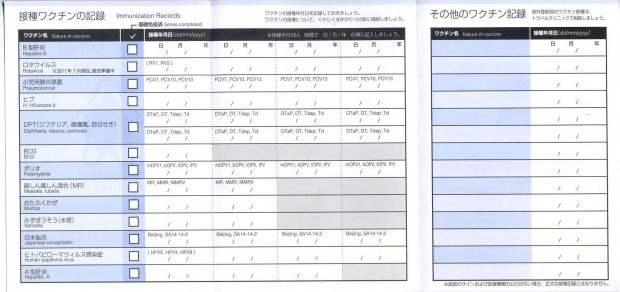 接種ワクチンの記録 Immunization Records
ワクチンの接種年月日を記録しておきましょう。
ワクチンの接種について、くわしくはかかりつけ医に相談しましょう。
基礎免疫済 Series completed
ワクチン名 Nature of vaccine ✓ 接種年月日 (dd/mm/yyyy)
日 月 年 日 月 年 日 月 年 日 月 年
B型肝炎
Hepatitis B
/ / / / / / / /
ロタウイルス ( RV1, RV5 )
Rotavirus
/ / / / / /
小児用肺炎球菌 PCV7, PCV10, PCV13 PCV7, PCV10, PCV13 PCV7, PCV10, PCV13 PCV7, PCV10, PCV13
Pneumococcal
/ / / / / / / /
ヒブ
H. influenzae b
/ / / / / / / /
DTaP, DT, Tdap, Td DTaP, DT, Tdap, Td DTaP, DT, Tdap, Td DTaP, DT, Tdap, Td
/ / / / / / / /
DPT(ジフテリア、破傷風、百日せき)
Diphtheria, tetanus, pertussis
DTaP, DT, Tdap, Td DTaP, DT, Tdap, Td DTaP, DT, Tdap, Td DTaP, DT, Tdap, Td
/ / / / / / / /
BCG
BCG
/ /
ポリオ mOPV1, bOPV, tOPV, IPV mOPV1, bOPV, tOPV, IPV mOPV1, bOPV, tOPV, IPV mOPV1, bOPV, tOPV, IPV
Poliomyelitis
/ / / / / / / /
麻しん風しん混合 (MR) MR, MMR, MMRV MR, MMR, MMRV
Measles, rubella
/ / / /
おたふくかぜ
Mumps
/ / / /
みずぼうそう(水痘)
Varicella
/ / / /
日本脳炎 Beijing, SA14-14-2 Beijing, SA14-14-2 Beijing, SA14-14-2 Beijing, SA14-14-2
Japanese encephalitis
/ / / / / / / /
ヒトパピローマウィルス感染症 ( HPV2, HPV4, HPV9 )
Human papilloma virus
/ / / / / /
A型肝炎
Hepatitis A
/ / / / / /
その他のワクチン記録
海外渡航前のワクチン接種は、
トラベルクリニックで相談しましょう。
ワクチン名 Nature of vaccine 接種年月日 (dd/mm/yyyy)
日 月 年
/ /
/ /
/ /
/ /
/ /
/ /
/ /
/ /
/ /
/ /
/ /
/ /
/ /